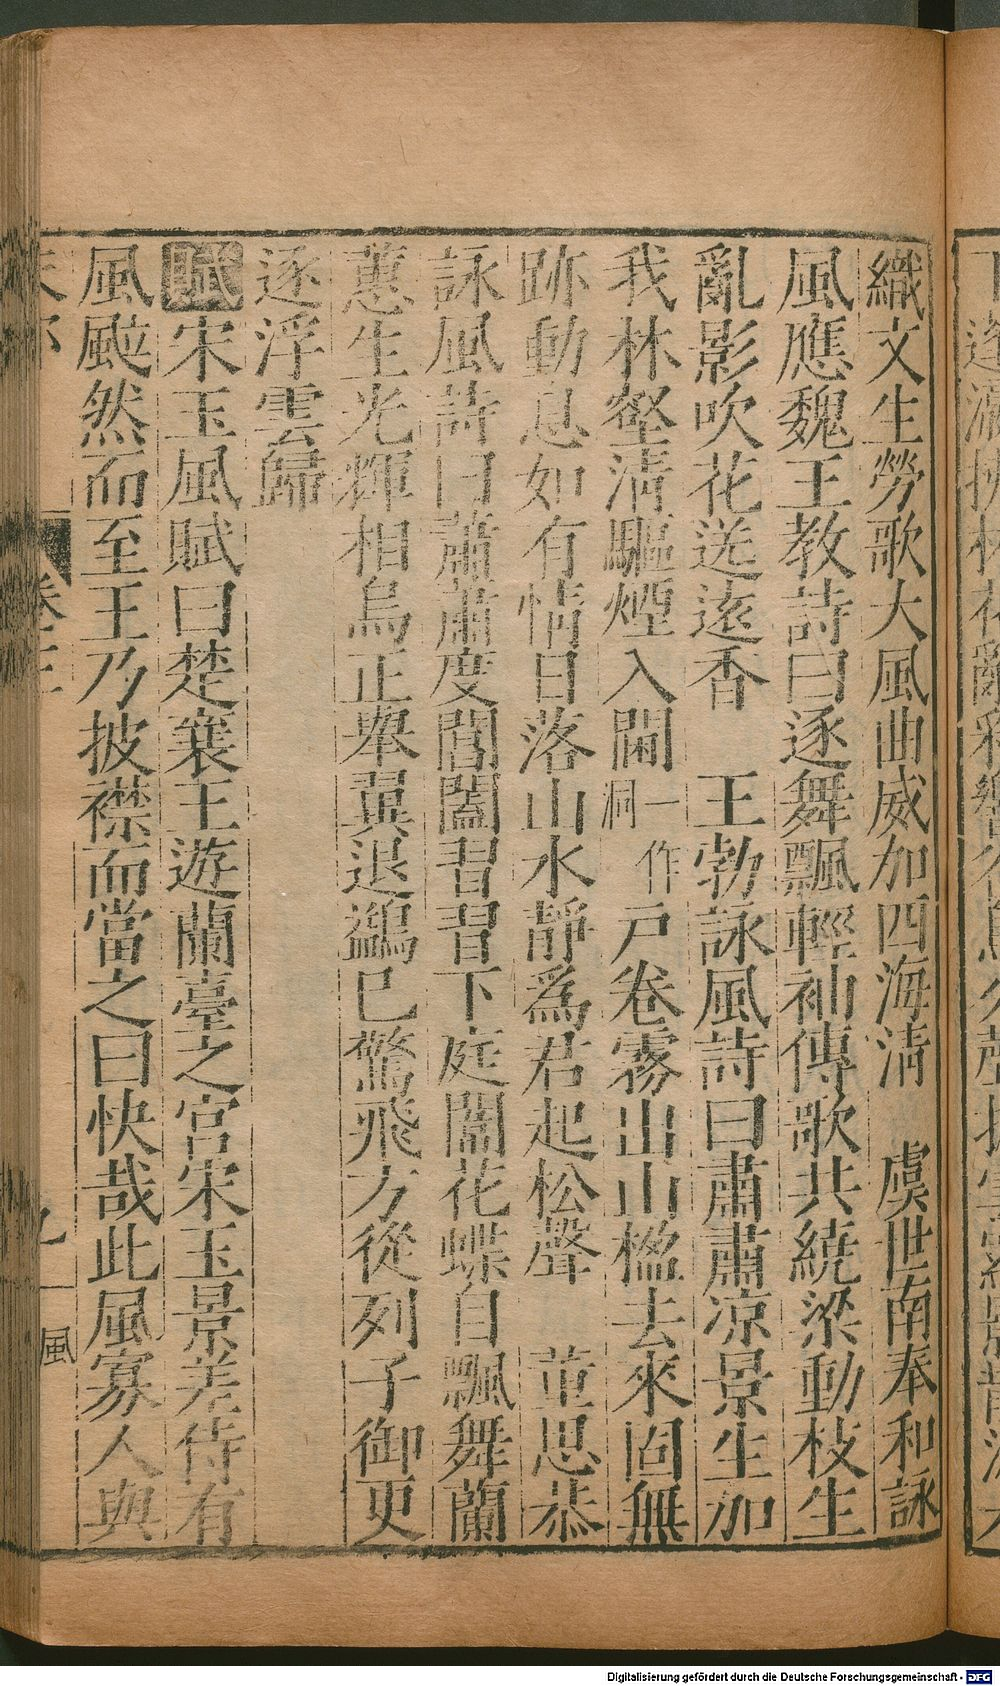 織文生勞歌大風曲威加四海淸　虞世南奉和詠
風應魏王教詩曰逐舞飄輕袖傳歌共繞梁動枝生
亂影吹花送遠香　王勃詠風詩曰肅肅凉景生加
我林壑淸驅煙入閫一作洞戸卷霧出山楹去來固無
跡動息如有情日落山水靜爲君起松聲　董思恭
詠風詩曰蕭蕭度閶闔習習下庭闈花蝶自飄舞蘭
蕙生光輝相烏正舉翼退鷁已驚飛方從列子御更
逐浮雲歸
賦宋玉風賦曰楚襄王遊蘭臺之宮宋玉景差侍有
風颯然而至王乃披襟而當之曰快哉此風寡人與
卷三
九
風
Digitalisierung gefördert durch die Deutsche Forschungsgemeinschaft - DFG